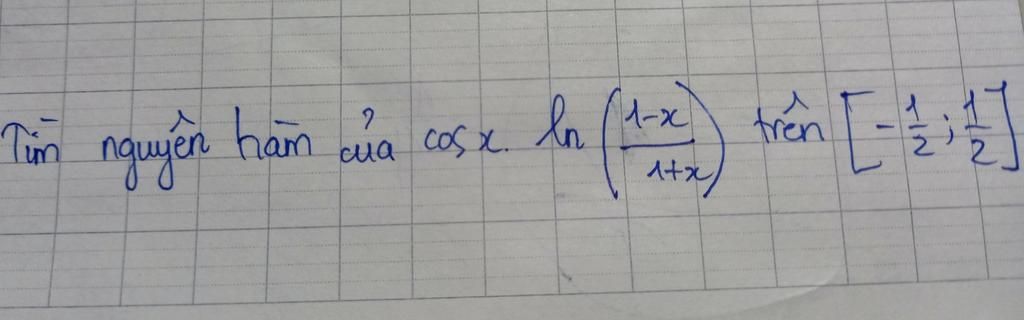 Tìm nguyên hàm của cosx. ln((1-x)/(1+x)) trên [-1/2; 1/2]